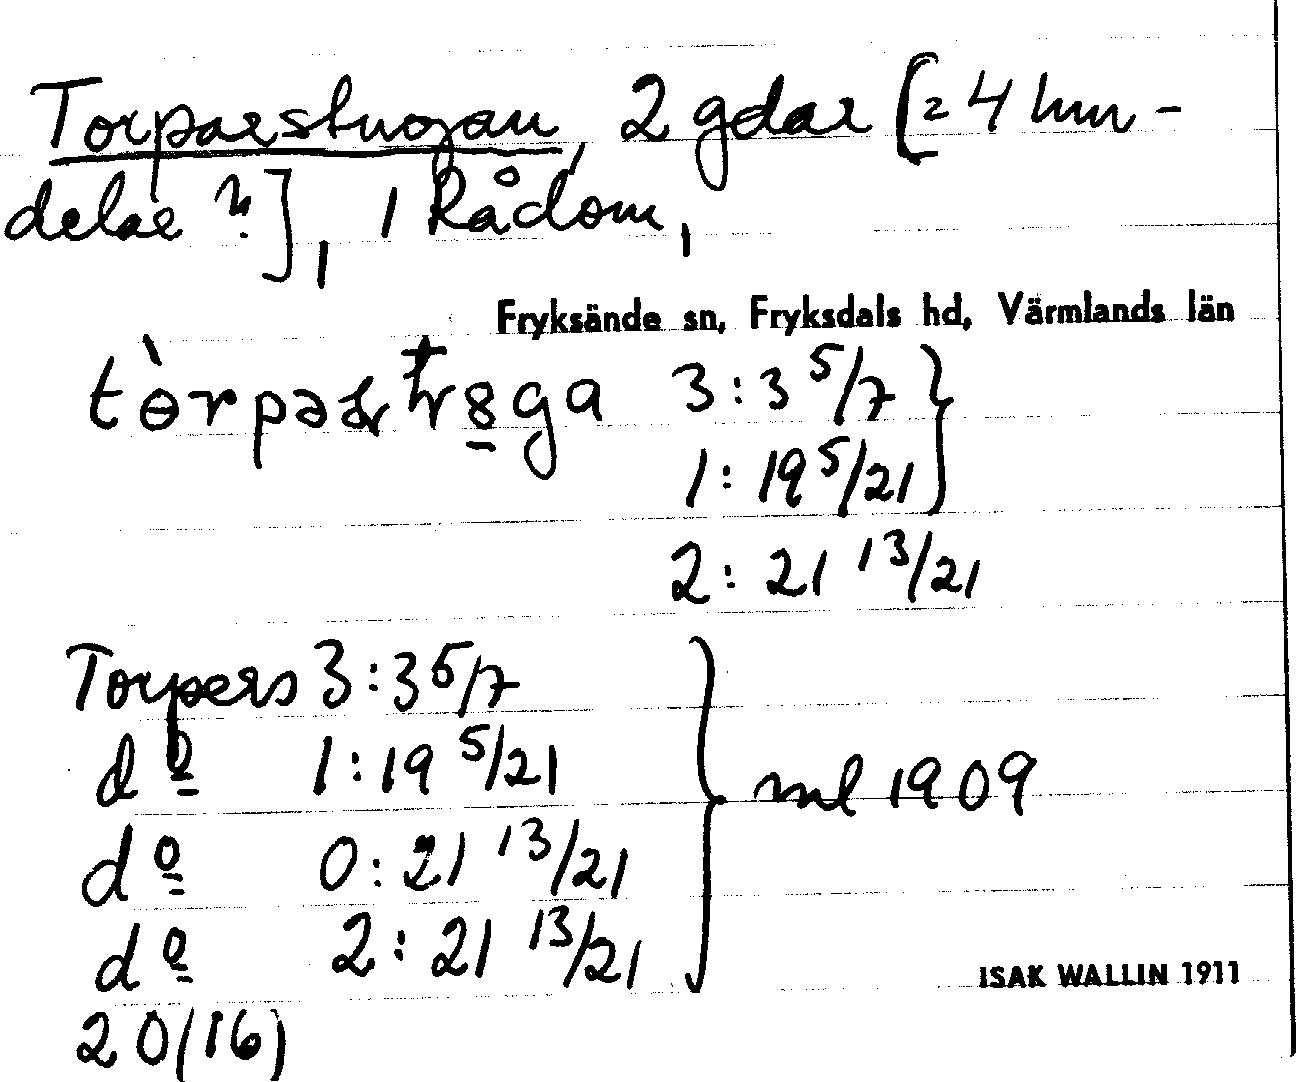 Torparstugan, 2 gdar [= 4 hm-
delar ?], i Rådom,
Fryksände sn, Fryksdals hd, Värmlands län
3:3 5/7
1:19 5/21
2:21 13/21
Torpers 3:3 5/7
dº 1:19 5/21
dº 0:21 13/21 ml 1909
dº 2:21 13/21
ISAK WALLIN 1911
20(16)